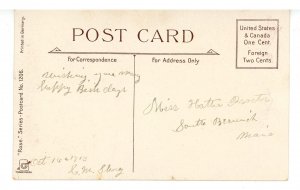 POST CARD
United States
& Canada
One Cent.
Foreign
Two Cents
For Correspondence
For Address Only
Printed in Germany.
"Rose." Series-Postcard No. 1296.
wishing you many
happy Birth days
Miss Hattie
South Berwick
Maine
Oct
C. M.